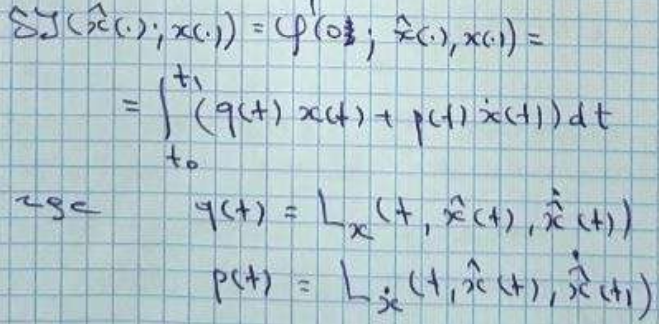 δJ(x̂(·); x(·)) = φ'(0; x̂(·), x(·)) =
= ∫_{t₀}^{t₁} (q(t) x(t) + p(t) ẋ(t)) dt
где q(t) = L_x (t, x̂(t), x̂̇(t))
p(t) = L_ẋ (t, x̂(t), x̂̇(t))